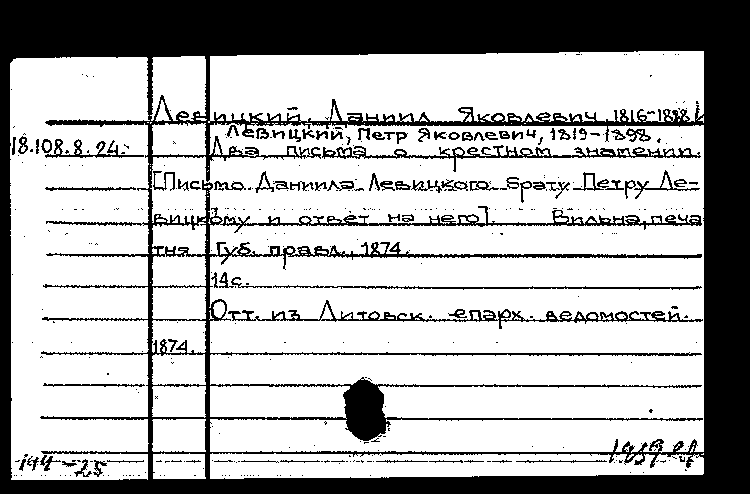 Левицкий, Даниил Яковлевич, 1816-1888 и
Левицкий, Петр Яковлевич, 1819-1898.
18.108.8.24. Два письма о крестном знамении.
[Письмо Даниила Левицкого брату Петру Ле-
вицкому и ответ на него]. Вильна, печа
тня Губ. правл., 1874.
14 с.
Отт. из Литовск. епарх. ведомостей.
1874.